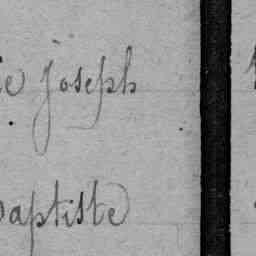 ie joseph
baptiste